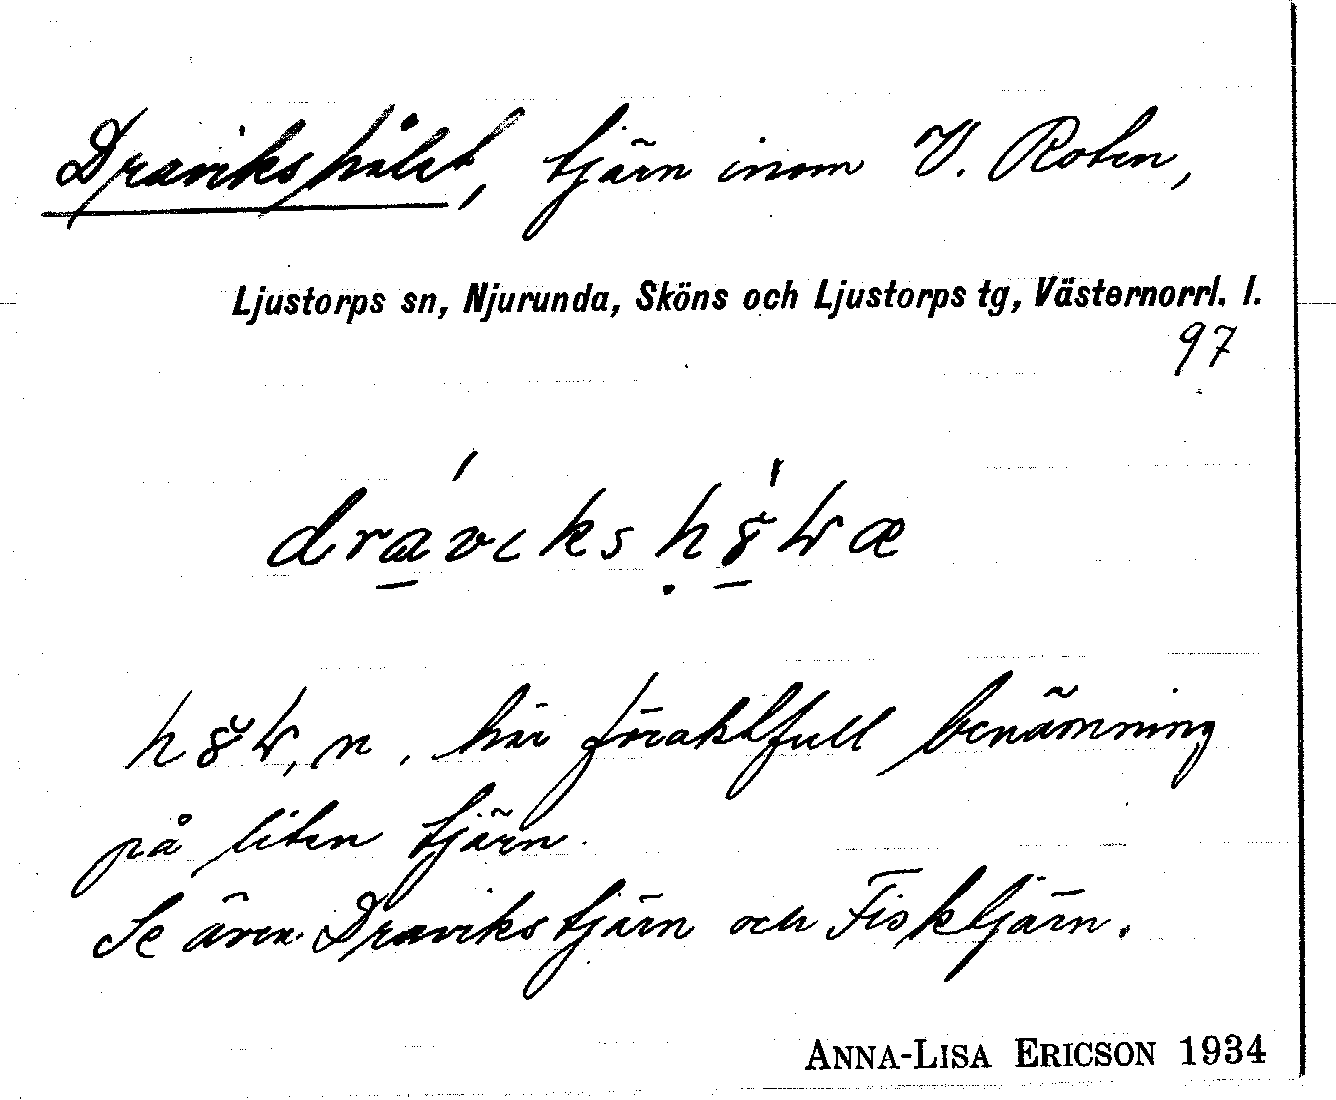 Dravikshålet, tjärn inom V. Roten,
Ljustorps sn, Njurunda, Sköns och Ljustorps tg, Västernorrl. l.
97
h, n. här föraktfull benämning
på liten tjärn.
Se även Dravikstjärn och Fisktjärn.
ANNA-LISA ERICSON 1934